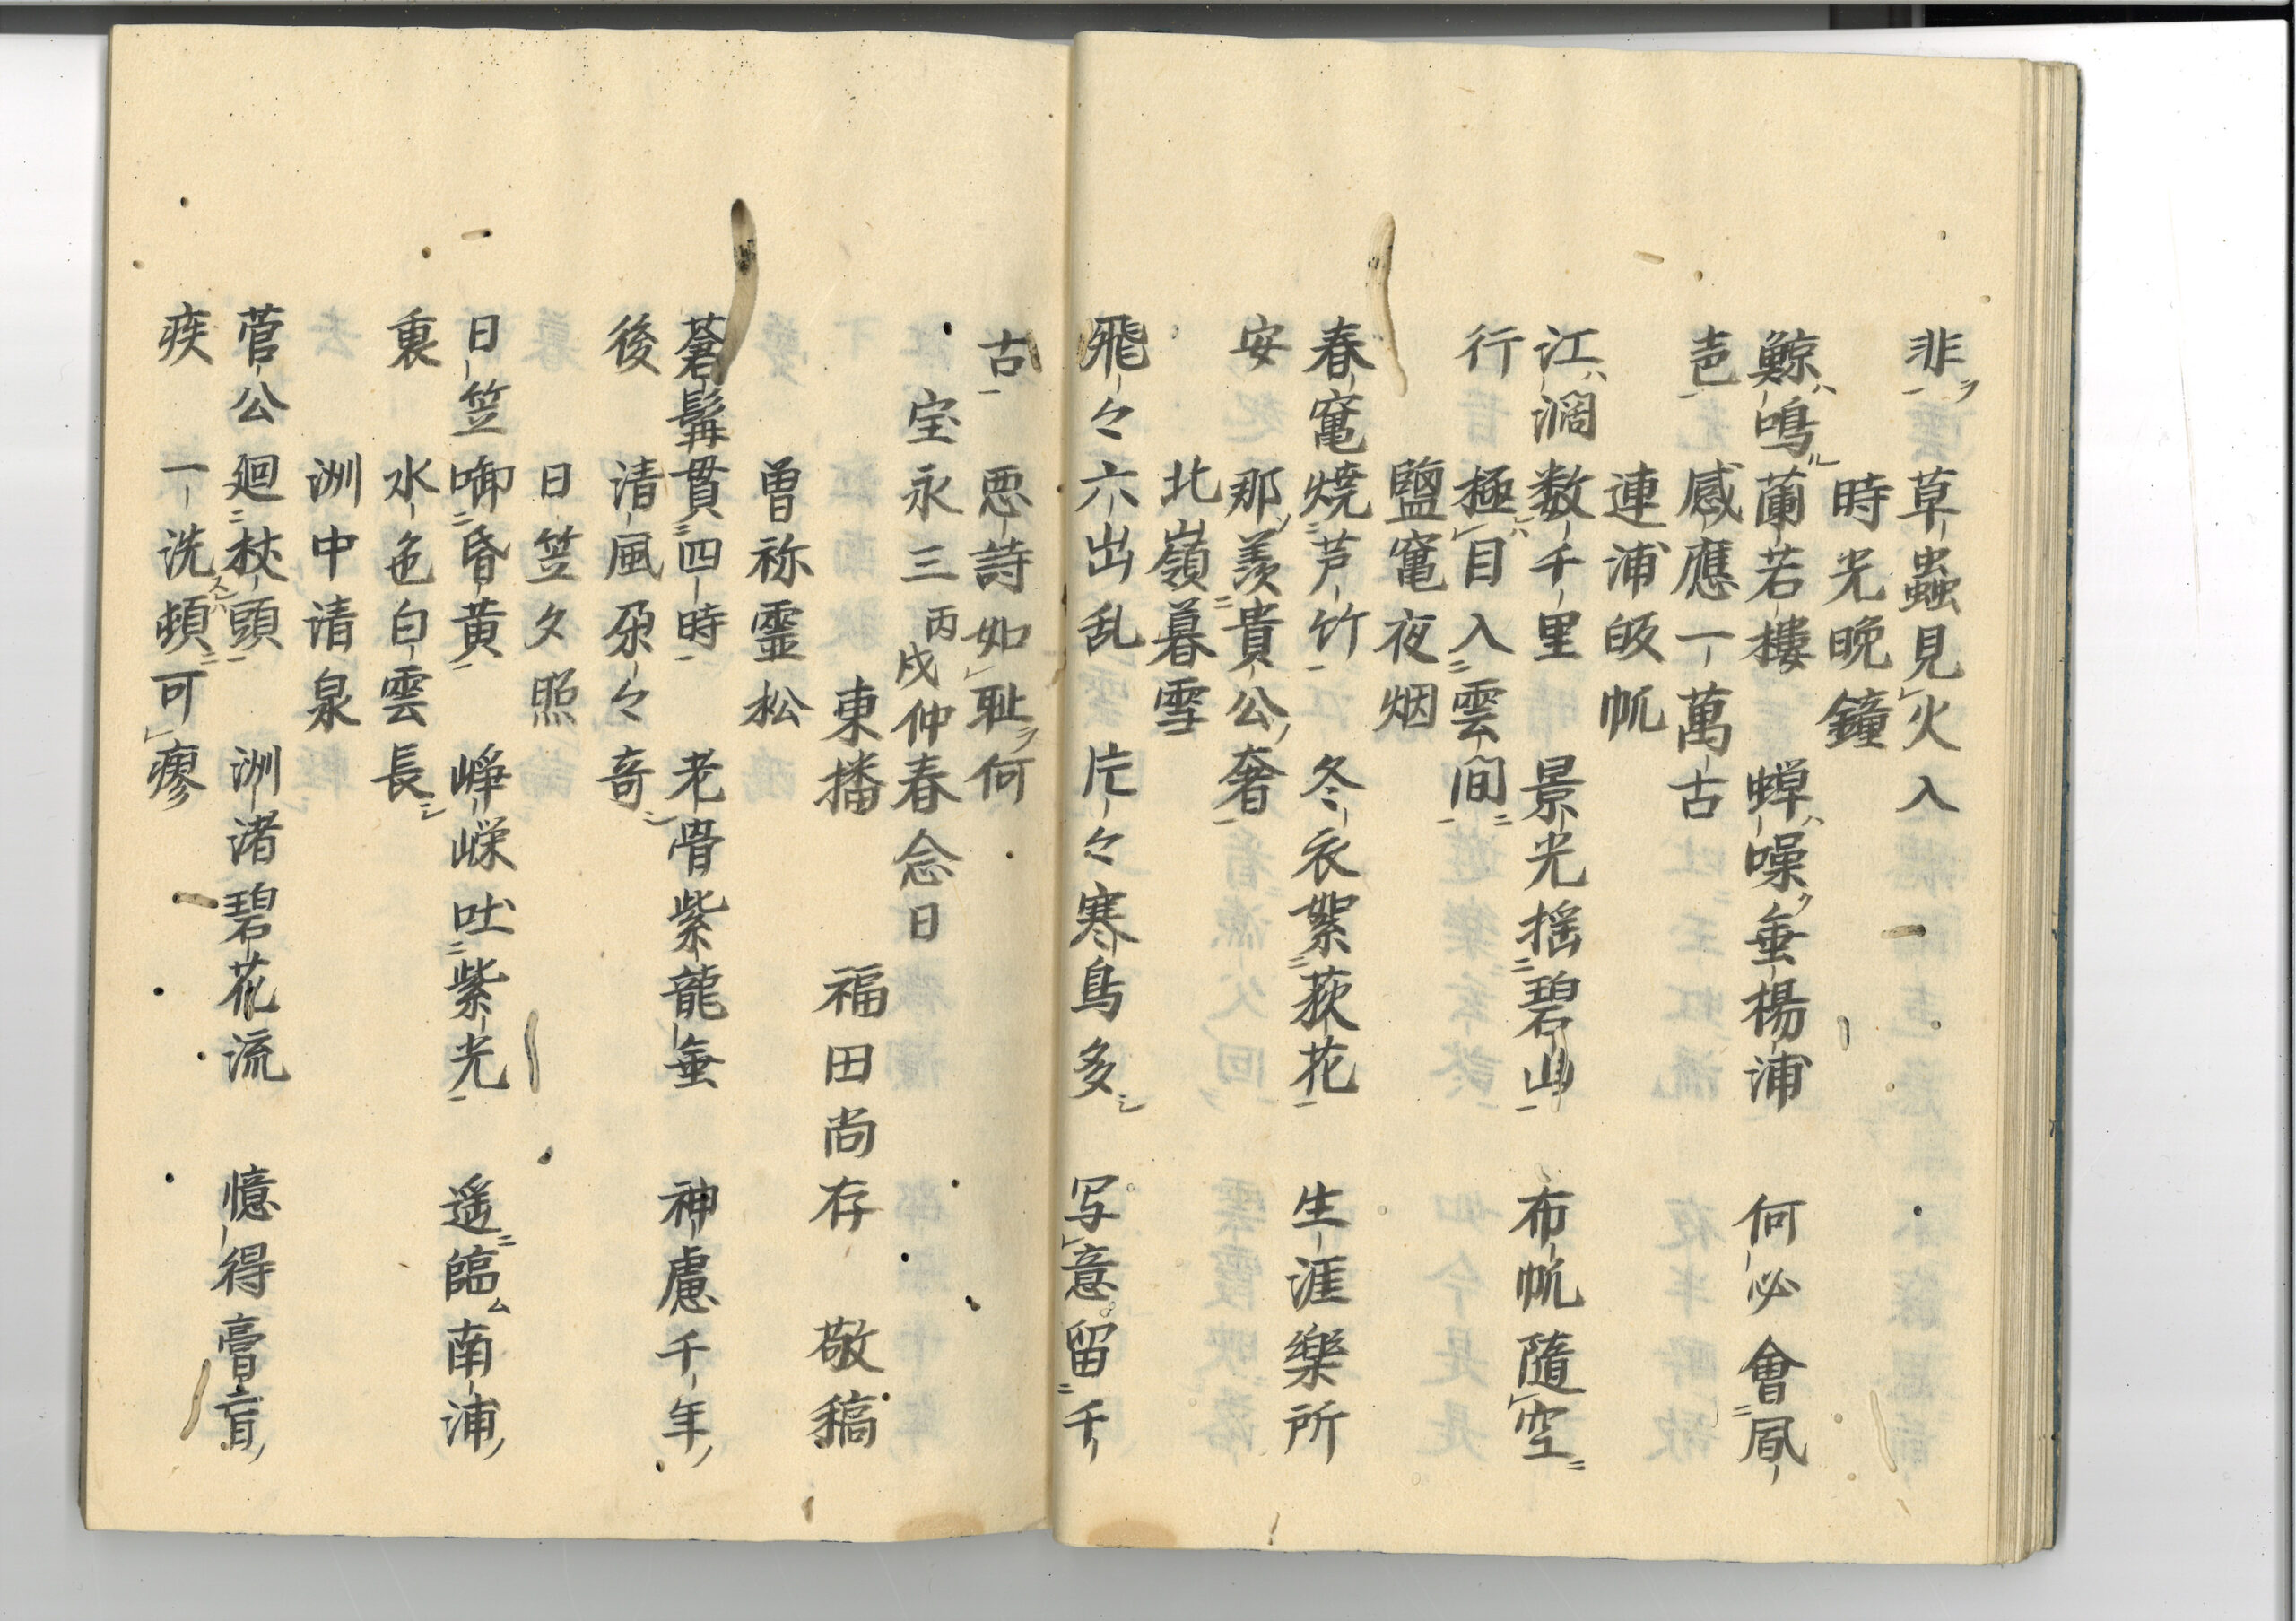 非 草蟲見火入
時光晩鐘
鯨鳴蘭若樓 蝉噪垂楊浦 何必會風
邑 感應一萬古
連浦皈帆
江濶数千里 景光揺碧山 布帆随空
行 極目入雲間
鹽竃夜烟
春竃焼芦竹 冬衣絮荻花 生涯樂所
安 那羨貴公奢
北嶺暮雪
飛々六出乱 片々寒鳥多 写意留千
古 悪詩如耻何
宝永三丙戌仲春念日
東播 福田尚存 敬稿
曽祢霊松
蒼髯貫四時 老骨紫龍垂 神慮千年
後 清風朶々奇
日笠夕照
日笠啣昏黄 崢嶸吐紫光 遥臨南浦
裏 水色白雲長
洲中清泉
菅公廻杖頭 洲渚碧花流 憶得膏盲
疾 一洗頓可瘳